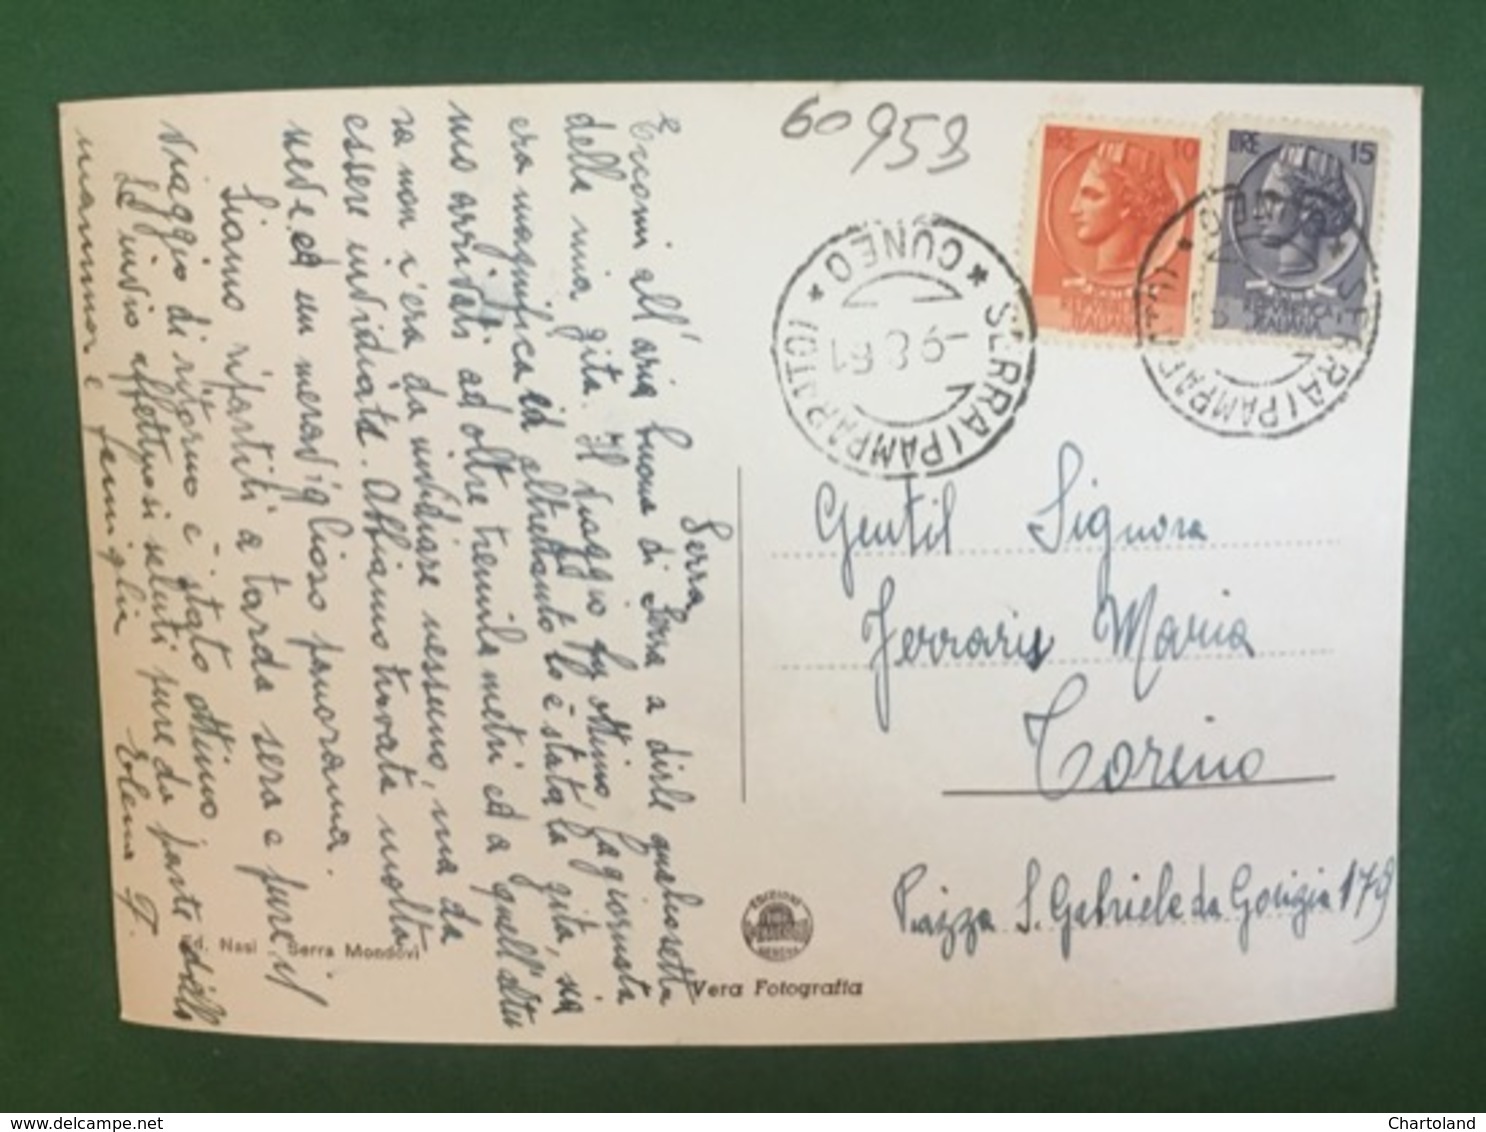 Serra
Eccomi all'aria buona di Serra a dirle qualcosetta
della mia gita. Il viaggio fu ottimo, la giornata
era magnifica ed altrettanto lo è stata la gita, sia
mo arrivati ad oltre tremila metri ed a quell'altu
ra non c'era da invidiare nessuno, ma da
essere invidiata. Abbiamo trovata molta
neve ed un meraviglioso panorama.
Siamo ripartiti a tarda sera e pure il
viaggio di ritorno è stato ottimo
Le invio affettuosi saluti pure da parte della
mamma e famiglia
60953
LIRE 10
LIRE 15
POSTE ITALIANA
SERRA (PAMPARATO) * CUNEO *
-9.8.61
Gentil Signora
Ferraris Maria
Torino
Piazza S. Gabriele da Gorizia 179
Ed. Nasi - Serra Mondovì
Vera Fotografia
www.delcampe.net
Chartoland